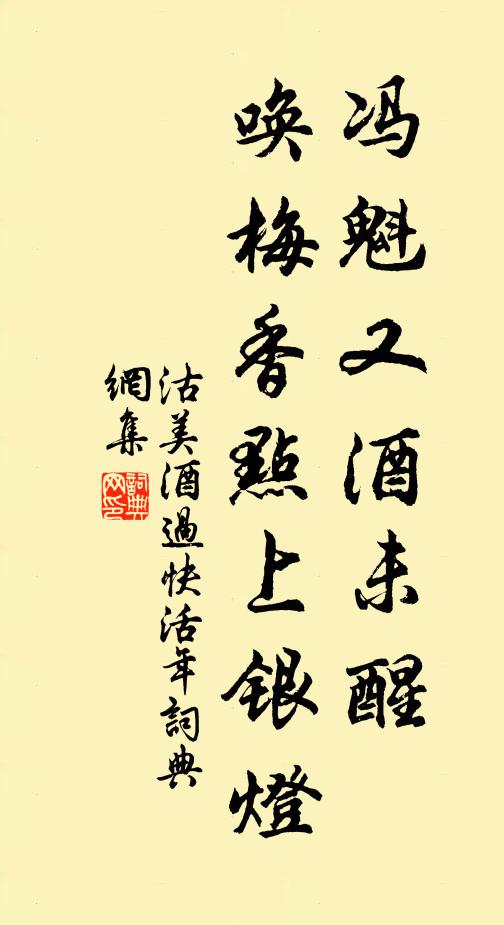 冯魁又酒未醒
唤梅香點上银燈
沽美酒過快活年詞典
網集
詞典
网印